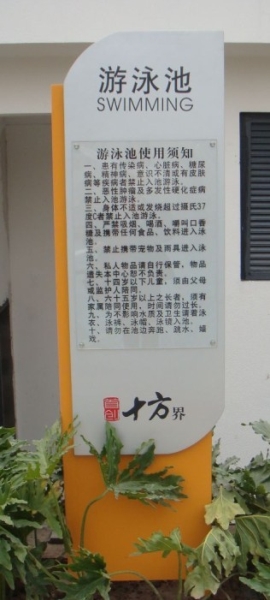 游泳池
SWIMMING
游泳池使用须知
一、患有传染病、心脏病、糖尿
病、精神病、意识不清或有皮肤
病等疾病者禁止入池游泳。
二、恶性肿瘤及多发性硬化症病
禁止入池游泳。
三、身体不适或发烧超过摄氏37
度C者禁止入池游泳。
四、严禁吸烟、喝酒、嚼叫口香
糖及携带任何食品、饮料进入泳
池。
五、禁止携带宠物及雨具进入泳
池。
六、私人物品请自行保管，物品
遗失本中心恕不负责。
七、十四岁以下儿童，须由父母
或监护人陪同。
八、六十五岁以上之长者，须有
家属陪同使用，时间请勿过长。
九、为不影响水质及卫生请着泳
衣、泳裤、泳帽、泳镜入池。
十、请勿在池边奔跑、跳水、嬉
戏。
十方界